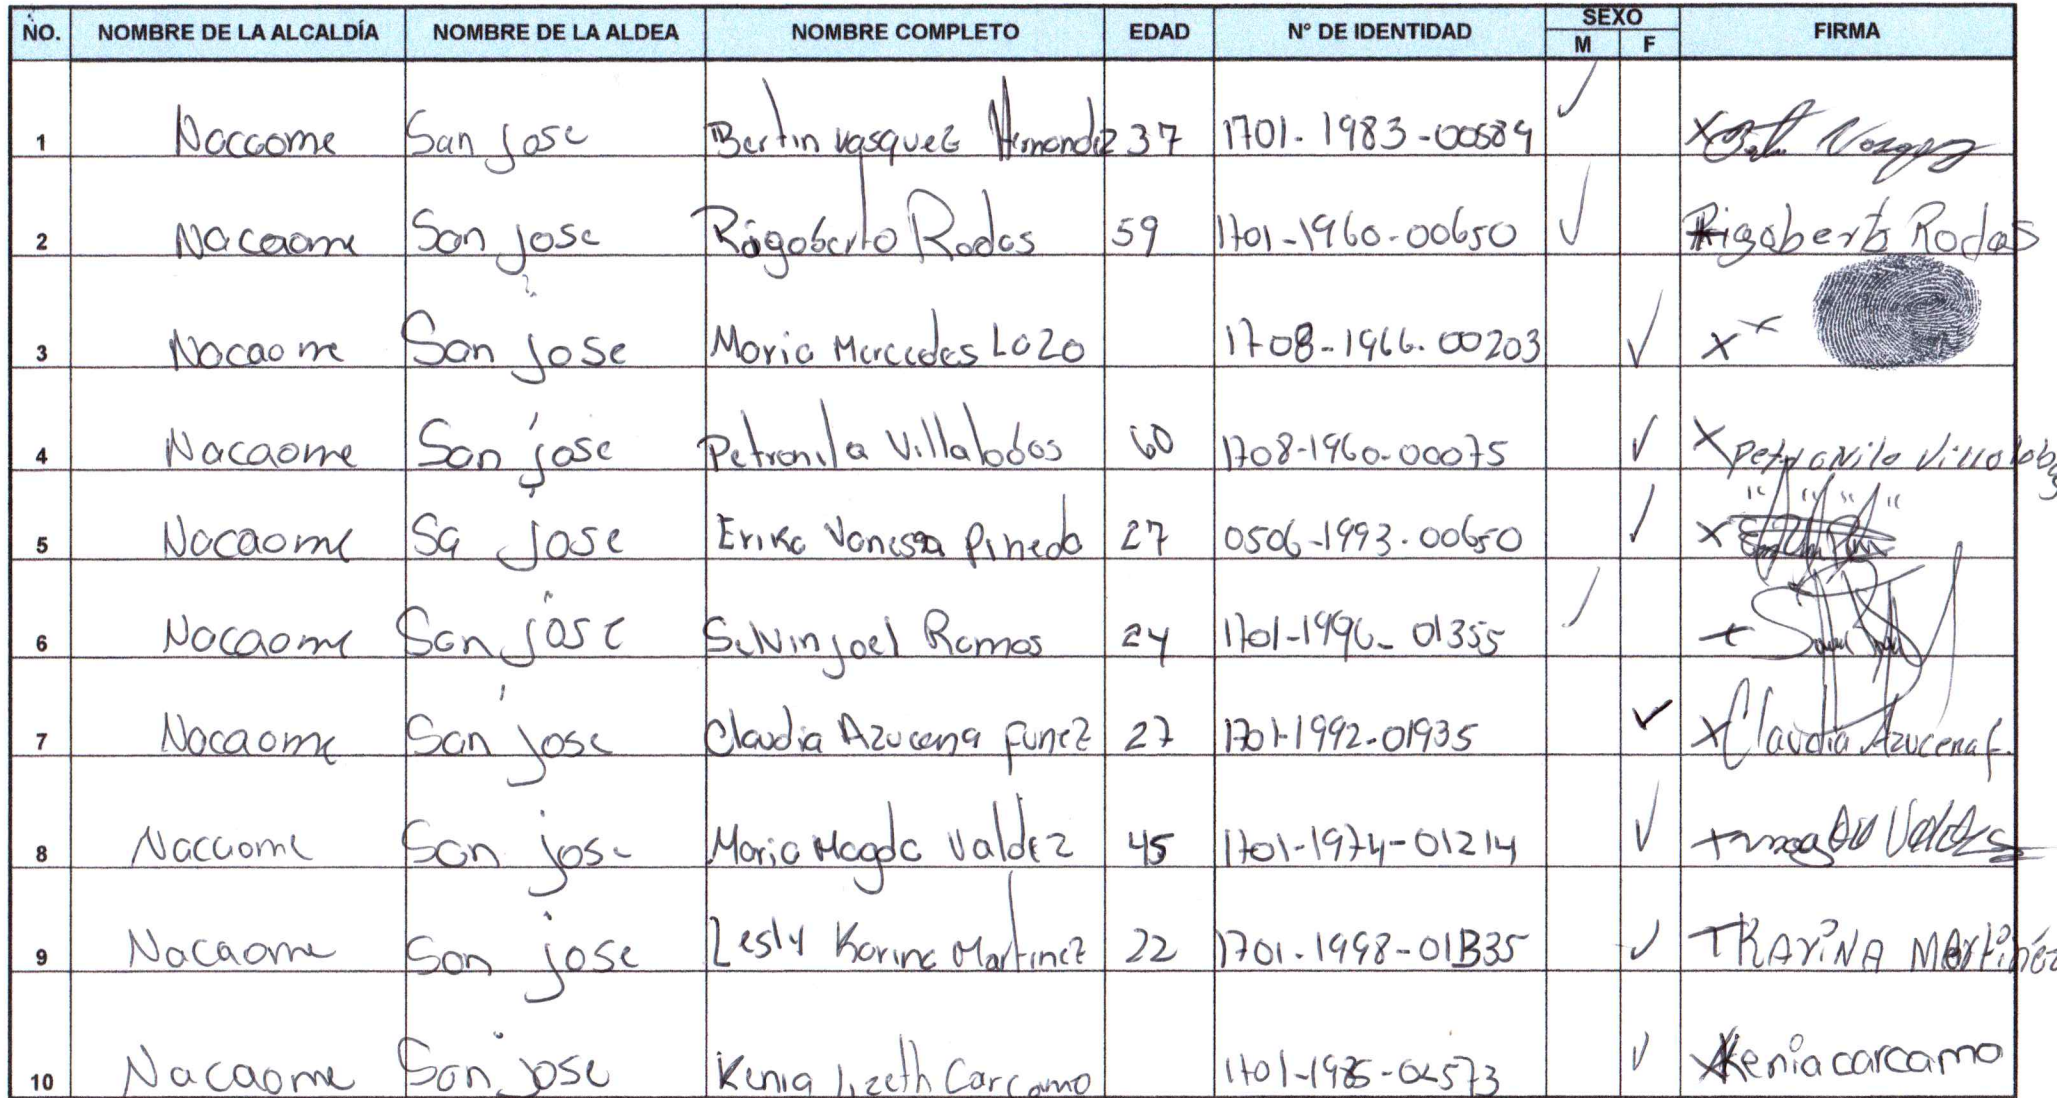 NO. NOMBRE DE LA ALCALDÍA NOMBRE DE LA ALDEA NOMBRE COMPLETO EDAD N° DE IDENTIDAD SEXO M F FIRMA
1 Naccome San jose Bertin vasquez Hernandez 37 1701-1983-00589 ✓ X
2 Nacaome San jose Rigoberto Rodas 59 1701-1960-00650 ✓ Rigoberto Rodas
3 Nacaome San jose Maria Mercedes Lazo 1708-1966-00203 ✓ X X
4 Nacaome San jose Petronila Villalobos 60 1708-1960-00075 ✓ X Petronila Villalobos
5 Nacaome Sa jose Erika Vanessa Pineda 27 0506-1993-00650 ✓ X
6 Nacaome San jose Selvin joel Ramos 24 1701-1996-01355 ✓ X
7 Nacaome San jose Claudia Azucena funez 27 1701-1992-01935 ✓ X Claudia Azucena f.
8 Naccome San jose Maria Magda Valdez 45 1701-1974-01214 ✓ X magda Valdez
9 Nacaome San jose Lesly Karina Martinez 22 1701-1998-01835 ✓ KARINA MArtinez
10 Nacaome San jose Kenia lizeth Carcamo 1701-1985- ✓ X Kenia carcamo